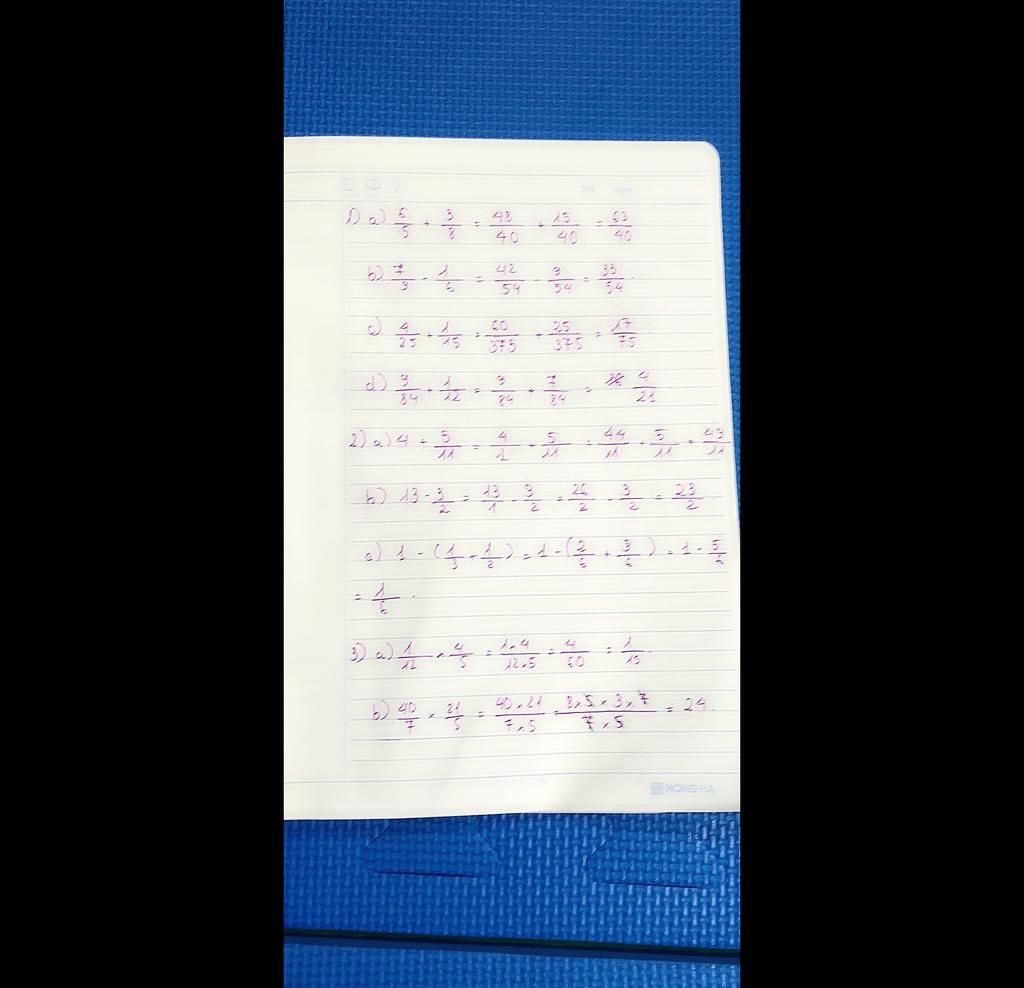 1) a) 6/5 + 3/8 = 48/40 + 15/40 = 63/40
b) 7/9 - 1/6 = 42/54 - 9/54 = 33/54
c) 4/25 + 1/15 = 60/375 + 25/375 = 17/75
d) 9/84 + 1/12 = 9/84 + 7/84 = 4/21
2) a) 4 + 5/11 = 4/1 + 5/11 = 44/11 + 5/11 = 49/11
b) 13 - 3/2 = 13/1 - 3/2 = 26/2 - 3/2 = 23/2
c) 1 - (1/3 + 1/2) = 1 - (2/6 + 3/6) = 1 - 5/6
= 1/6
3) a) 1/12 × 4/5 = 1×4/12×5 = 4/60 = 1/15
b) 40/7 × 21/5 = 40×21/7×5 = 8×5×3×7/7×5 = 24
HONG HA